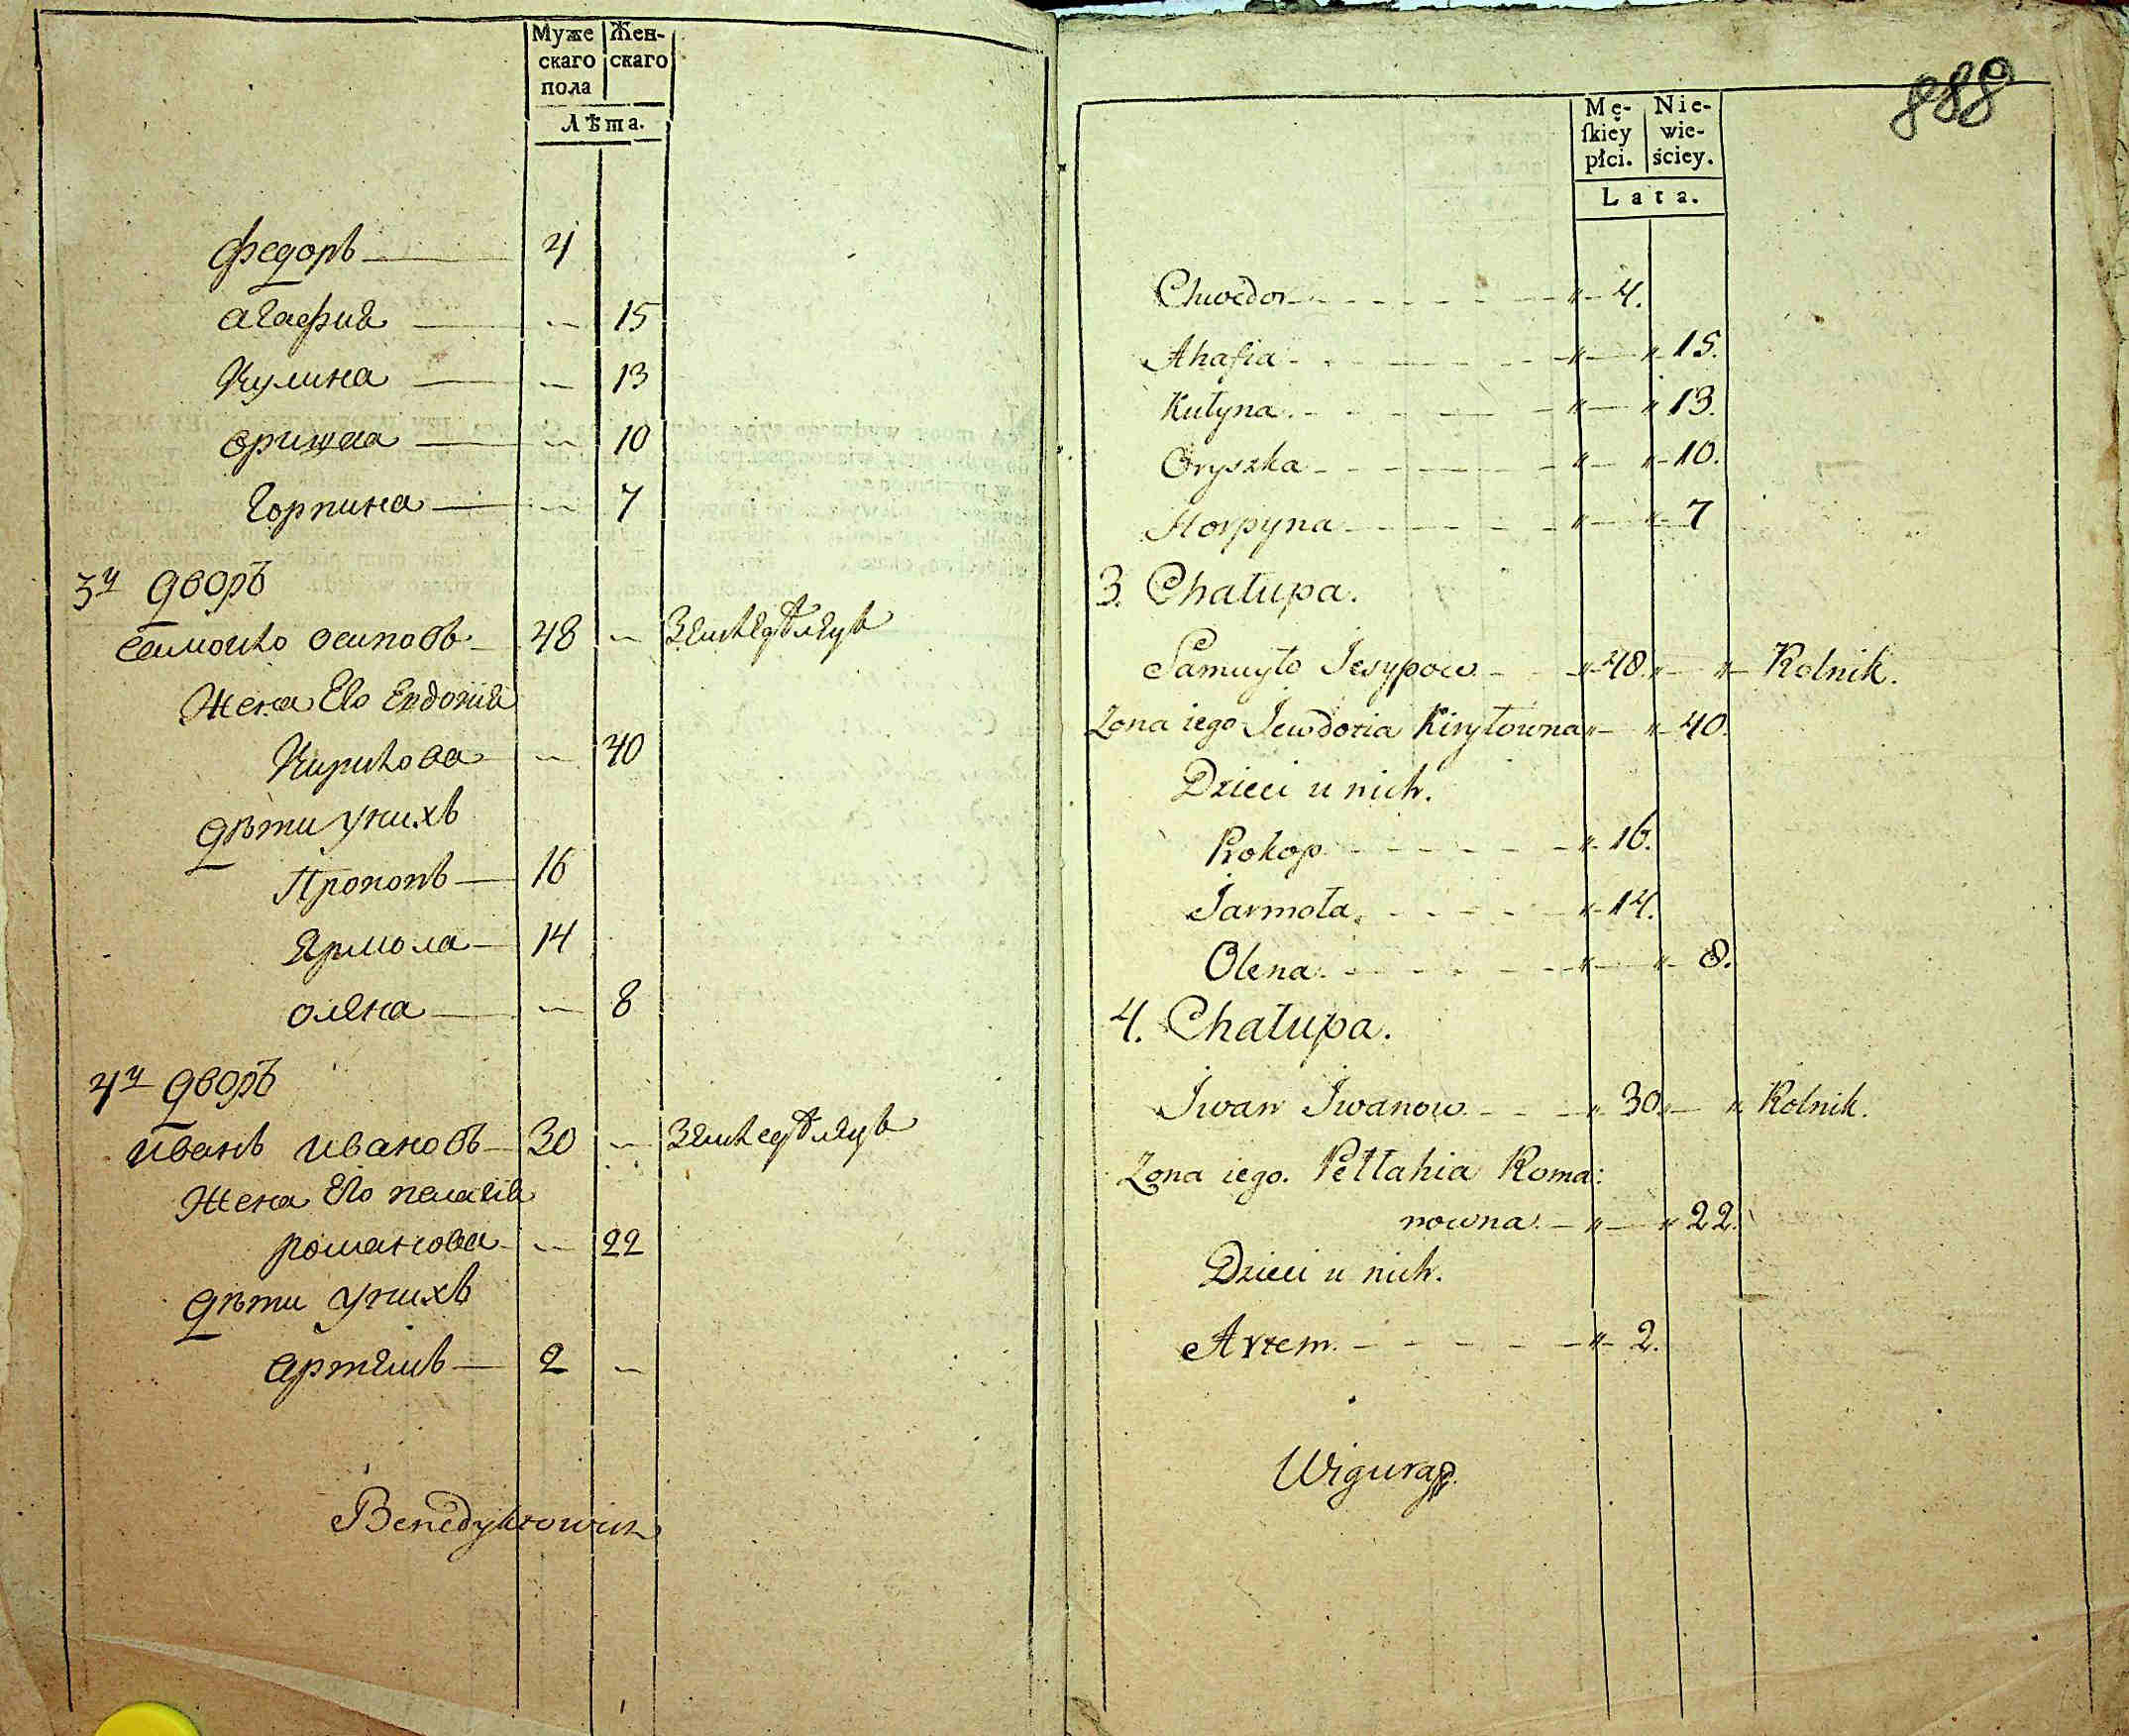 Муже Жен-
скаго скаго
пола
Лѣта.
Федоръ 4
Агафия 15
Кулина 13
Оришка 10
Горпина 7
3й Дворъ
Самойло Осиповъ 48 Земледѣлецъ
Жена Его Евдокия
Кирилова 40
Дѣти у нихъ
Прокопъ 16
Ярмола 14
Олена 8
4й Дворъ
Иванъ Ивановъ 30 Земледѣлецъ
Жена Его Пелагия
Романова 22
Дѣти у нихъ
Артемъ 2
Benedyktowicz
888
Mę- Nie-
ſkiey wie-
płci. ściey.
Lata.
Chwedor " 4.
Ahafia " " 15.
Kułyna " " 13.
Oryszka " " 10.
Horpyna " " 7
3. Chałupa.
Samuyło Jesypow " 48. " " Rolnik.
Żona iego Jewdokia Kiryłowna " " 40.
Dzieci u nich.
Prokop " 16.
Jarmoła " 14.
Olena " " 8.
4. Chałupa.
Iwan Iwanow " 30. " Rolnik.
Żona iego. Pełłahia Roma:
nowna " " 22.
Dzieci u nich.
Artem. " 2.
Wigura